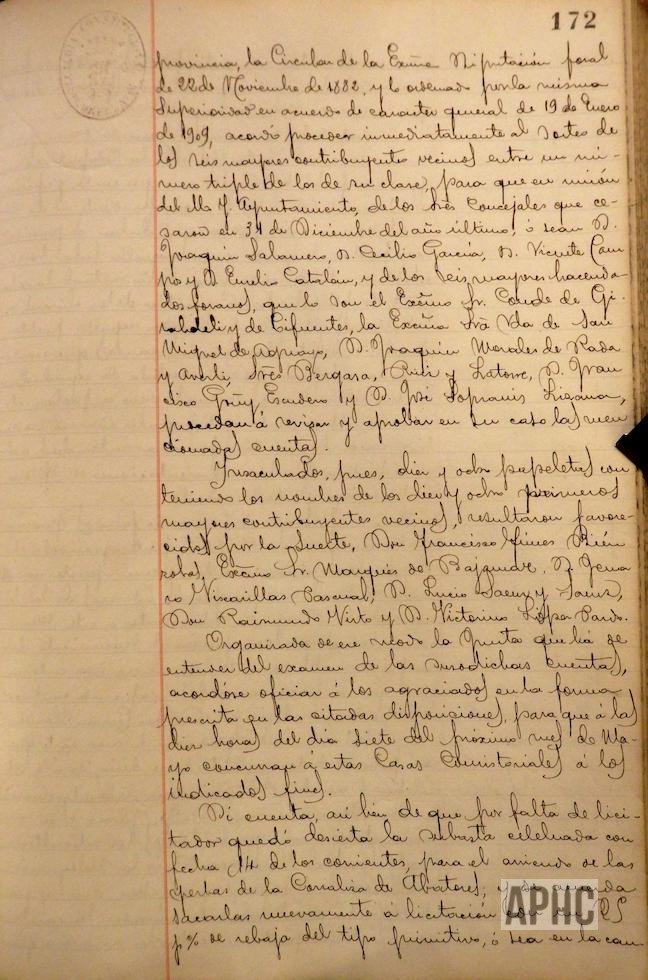 172
provincia, la Circular de la Excma Diputación foral
de 22 de Noviembre de 1882, y lo ordenado por la misma
Superioridad en acuerdo de caracter general de 19 de Enero
de 1909, acordó proceder inmediatamente al sorteo de
los seis mayores contribuyentes vecinos entre un nú-
mero triple de los de su clase, para que en unión
del M. Y. Ayuntamiento, de los tres Concejales que ce-
saron en 31 de Diciembre del año último, ó sean D.
Joaquin Salamero, D. Cecilio García, D. Vicente Cam-
po y D. Emilio Catalán, y de los seis mayores hacenda-
dos foranos, que lo son el Excmo Sr. Conde de Gi-
raldeli y de Cifuentes, la Excma Sra Vda de San
Miguel de Aguayo, D. Joaquin Morales de Rada
y Averli, Sres Bergara, Ruiz y Latorre, D. Fran-
cisco Goñy Escudero y D. José Sopranis Lizana,
procedan á revisar y aprobar en su caso las men-
cionadas cuentas.
Insaculados, pues, diez y ocho papeletas con-
teniendo los nombres de los diez y ocho primeros
mayores contribuyentes vecinos, resultaron favore-
cidos por la suerte, Don Francisco Gimes
Excmo Sr. Marqués de D. Gena-
ro Viscarillas Pascual, D. Lucio Saenz y Sainz,
Don Raimundo Virto y D. Victorino López Pardo.
Organizada de ese modo la Junta que há de
entender del examen de las susodichas cuentas,
acordóse oficiar á los agraciados en la forma
prescrita en las citadas disposiciones, para que á las
diez horas del día siete del próximo mes de Ma-
yo concurran á estas Casas Consistoriales á los
indicados fines.
Dí cuenta, así bien de que por falta de lici-
tador quedó desierta la subasta celebrada con
fecha 14 de los corrientes, para el arriendo de las
yerbas de la Corraliza de Abatores, y se acuerda
sacarlas nuevamente á licitación con un 25
p% de rebaja del tipo primitivo, ó sea en la can-
APHC